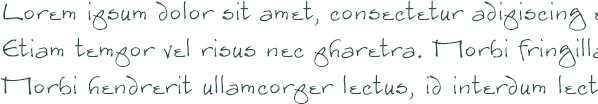 Lorem ipsum dolor sit amet, consectetur adipiscing e
Etiam tempor vel risus nec pharetra. Morbi fringilla
Morbi hendrerit ullamcorper lectus, id interdum lect